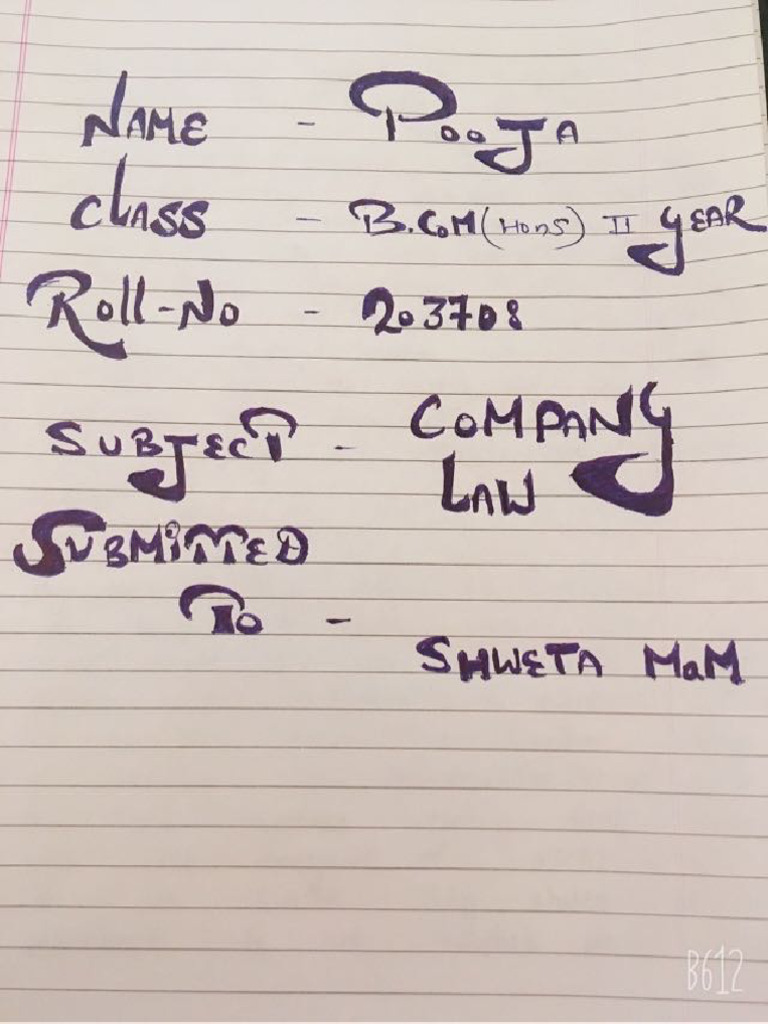 NAME - POOJA
CLASS - B.COM (HONS) II YEAR
Roll-No - 203708
SUBJECT - COMPANY
LAW
SUBMITTED
TO -
SHWETA MaM
B612